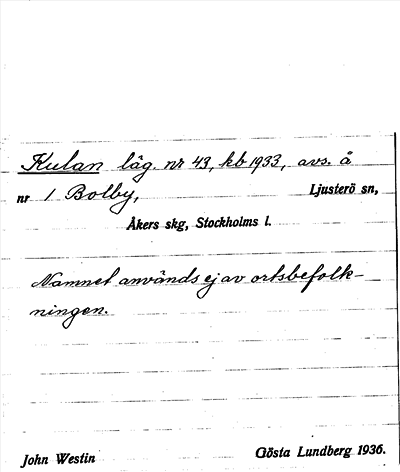 Kulan läg. nr 43, kb 1933, avs. å
nr 1 Bolby, Ljusterö sn,
Åkers skg, Stockholms l.
Namnet används ej av ortsbefolk-
ningen.
John Westin Gösta Lundberg 1936.